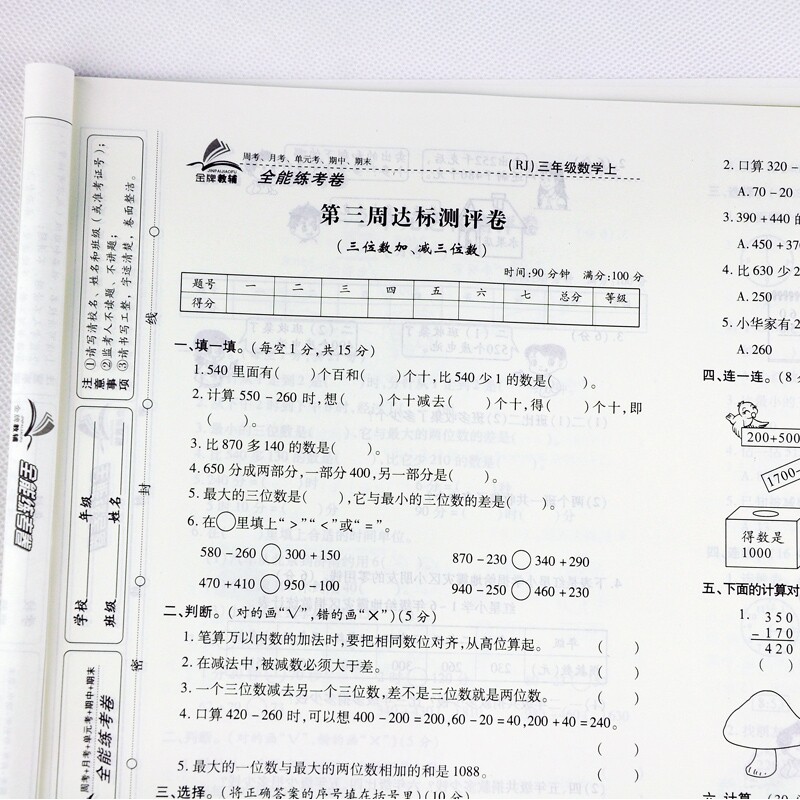 周考、月考、单元考、期中、期末
JINPAIJIAOFU
金牌教辅
全能练考卷
(RJ)三年级数学上
第三周达标测评卷
(三位数加、减三位数)
时间:90分钟 满分:100分
题号 一 二 三 四 五 六 七 总分 等级
得分
一、填一填。(每空1分,共15分)
1.540里面有( )个百和( )个十,比540少1的数是( )。
2.计算550-260时,想( )个十减去( )个十,得( )个十,即
( )。
3.比870多140的数是( )。
4.650分成两部分,一部分400,另一部分是( )。
5.最大的三位数是( ),它与最小的三位数的差是( )。
6.在○里填上“>”“<”或“=”。
580-260○300+150 870-230○340+290
470+410○950-100 940-250○460+230
二、判断。(对的画“√”,错的画“×”)(5分)
1.笔算万以内数的加法时,要把相同数位对齐,从高位算起。 ( )
2.在减法中,被减数必须大于差。 ( )
3.一个三位数减去另一个三位数,差不是三位数就是两位数。 ( )
4.口算420-260时,可以想400-200=200,60-20=40,200+40=240。
( )
5.最大的一位数与最大的两位数相加的和是1088。 ( )
三、选择。(将正确答案的序号填在括号里)(10分)
2.口算320-
A.70-20
3.390+440的
A.450+37
4.比630少2
A.250
5.小华家有2
A.260
四、连一连。(8分
200+500
1700-
得数是
1000
五、下面的计算对
1. 350
-170
420
( )
六、计算。(30
注意事项
①请写清校名、姓名和班级(或准考证号);
②监考人不读题、不讲题;
③请书写工整,字迹清楚,卷面整洁。
学校 年级
班级 姓名
线
封
密
金牌教辅
全能练考卷
周考+月考+单元考+期中+期末
全能练考卷